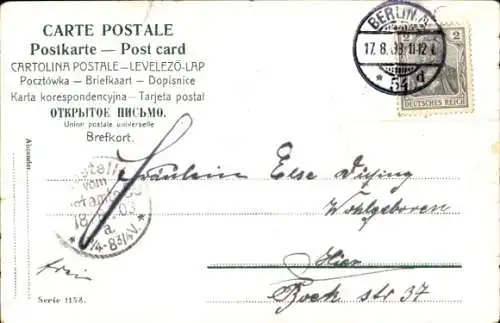 CARTE POSTALE
Postkarte — Post card
CARTOLINA POSTALE — LEVELEZŐ-LAP
Pocztówka — Briefkaart — Dopisnice
Karta korespondencyjna — Tarjeta postal
ОТКРЫТОЕ ПИСЬМО.
Union postale universelle
Brefkort.
BERLIN
17. 8. 03. 11-12
* 54 d
2 2
DEUTSCHES REICH
Absender.
Bestellt
vom
Postamte 59
18. 03
a.
1/4-83/4V.
Fräulein Else
Wohlgeboren
Hier
Bock str 37
frei
Serie 1158.